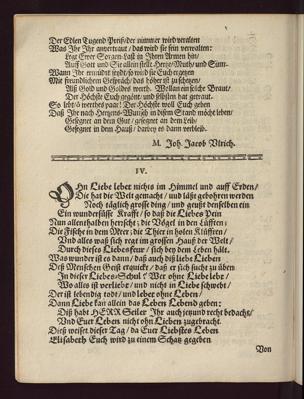 Der Edlen Tugend Preiß/ der nimmer wird veralten
Was Ihr Ihr anvertraut/ das wird sie fein verwalten:
Legt Ewer Sorgen-Last in Ihren Armen hin/
Auff Gott und Sie allein stellt Hertze/ Muth/ und Sinn.
Wann Ihr ermüdet seydt/ so wird sie Euch ergetzen
Mit freundlichem Gespräch/ das höher ist zu schetzen/
Alß Gold und Goldes werth. Wolan ein solche Braut/
Der Höchste Euch ergönt/ und selbsten hat getraut.
So lebt/ ô werthes paar! Der Höchste woll Euch geben
Daß Ihr nach Hertzens-Wunsch in disem Stand möcht leben/
Gesegnet an dem Gut/ gesegnet an dem Leib/
Gesegnet in dem Hauß/ darbey es dann verbleib.
M. Joh. Jacob Ulrich.
IV.
Ohn Liebe lebet nichts im Himmel und auff Erden/
Die hat die Welt gemacht/ und läßt gebohren werden
Noch täglich grosse ding/ und geußt denselben ein
Ein wundersüsse Krafft/ so daß die Liebes Pein
Nun allenthalben herrscht; die Vögel in den Lüfften;
Die Fische in dem Meer; die Thier in holen Klüfften/
Und alles was sich regt im grossen Hauß der Welt/
Durch dieses Liebesfeur/ sich bey dem Leben hält.
Was wunder ist es dann/ daß auch diß liebe Lieben
Deß Menschen Geist erquickt/ daß er sich sucht zu üben
In dieser Liebes-Schul? Wer ohne Liebe lebt/
Wo alles ist verliebt/ und nicht in Liebe schwebt/
Der ist lebendig todt/ und lebet ohne Leben/
Dann Liebe kan allein das Leben Lebend geben:
Diß habt HERR Seiler Ihr auch jetzund recht bedacht/
Und Euer Leben nicht ohn Lieben zugebracht.
Dieß weiset dieser Tag/ da Euer Liebstes Leben
Elisabeth Euch wird zu einem Schatz gegeben
Von